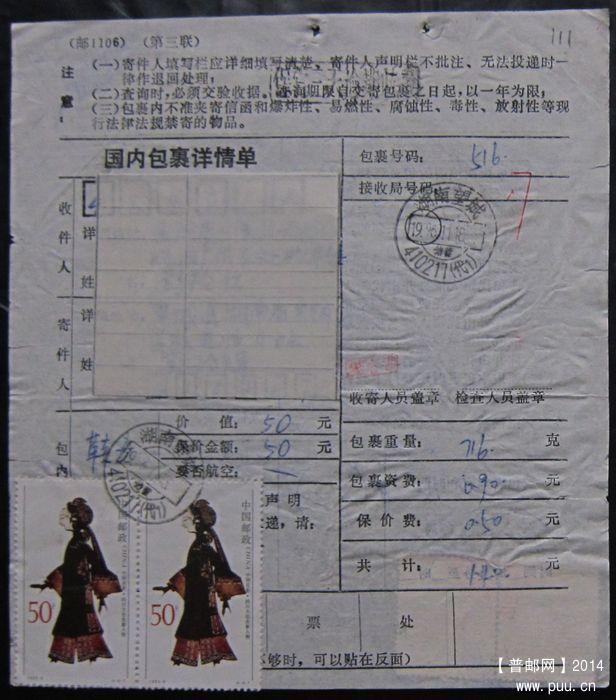 (邮1106) (第三联)
111
注意:
(一)寄件人填写栏应详细填写清楚、寄件人声明栏不批注、无法投递时一律作退回处理;
(二)查询时,必须交验收据。查询期限自交寄包裹之日起,以一年为限;
(三)包裹内不准夹寄信函和爆炸性、易燃性、腐蚀性、毒性、放射性等现行法律法规禁寄的物品。
国内包裹详情单
包裹号码: 516.
接收局号码:
湖南望城
410217(代1)
收件人
详
姓
寄件人
详
姓
收寄人员盖章 检查人员盖章
包内
价 值: 50 元
保价金额: 50 元
要否航空:
湖南
410217(代1)
包裹重量: 716. 克
包裹资费: 元
保 价 费: 0.50 元
共 计: 元
声 明
递,请:
中国邮政
CHINA
50分
中国邮政
CHINA
50分
票 处
够时,可以贴在反面)
【普邮网】2014
www.puu.cn